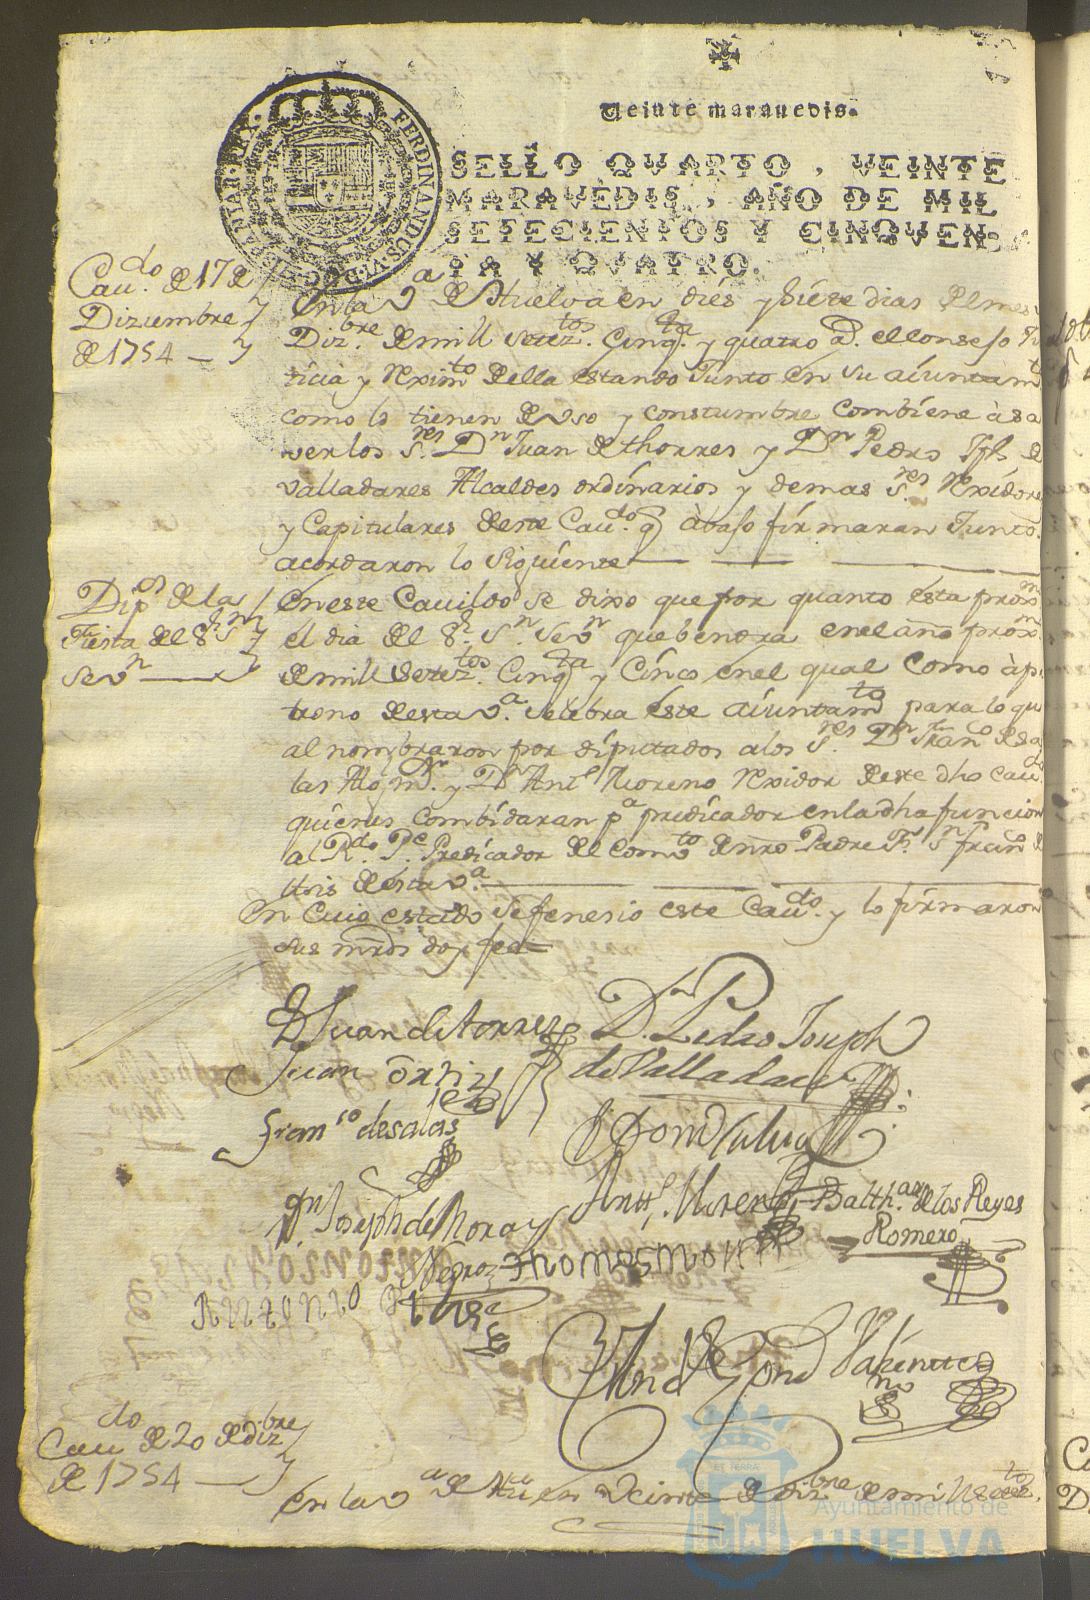 Veinte maravedis.
SELLO QVARTO, VEINTE
MARAVEDIS, AÑO DE MIL
SETECIENTOS Y CINQVEN-
TA Y QVATRO.
FERDINANDUS VI D G HISPANIAR REX
Cau.do de 17 de
Diziembre
de 1754
En la V.a de Huelva en diés y siete dias del mes
Diz.bre de mill setez.tos cinq.ta y quatro a.s el Consejo Ju
ticia y Reximto della estando Junto en su aiuntam.to
como lo tienen de Uso y constumbre combiene à sa
ver los S.res D.n Juan de thorres y D.n Pedro Jph de
valladares Alcaldes ordinarios y demas S.res Rexidore
y Capitulares deste Cau.do q abajo firmaran Juntos
acordaron lo siguiente
Dip.os de la
Fiesta del S.r S.n
Sev.n
En este Cavildo se dixo que por quanto esta prox.mo
el dia del S.r S.n Sev.n que bendra en el año prox.mo
de mill setez.tos cinq.ta y Cinco en el qual como àp
trono de esta V.a Selebra este aiuntam.to para lo qu
al nombraron por diputados a los S.res D.n Fran.co de sa
las y D.n Ant.o Moreno Rexidor de este dho Cau.do
quienes combidaran p.a predicador en la dha funcion
al R.do P.e Predicador del Comv.to de nro Padre S.n Fran.co de
esta V.a
En Cuio estado se fenesio este Cau.do y lo firmaron
sus mrds doy fee
D Juan de torres
D.n Pedro Joseph
de Valladares
Juan Ortiz
Fran.co de salas
D.n Joseph de Mora y
Negro
Antt.o Moreno
Balth.ar de los Reyes
Romero
Thomas
Antonio
Valiente
Cau.do de 20 de diz.bre
de 1754
En la V.a de Hu.a en Veinte de diz.bre de mill setez.tos
Ayuntamiento de
HUELVA